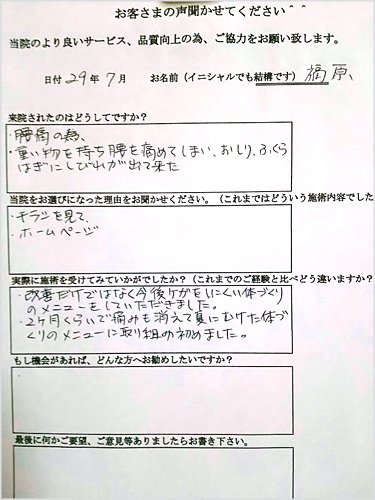 お客さまの声聞かせてください^ ^
当院のより良いサービス、品質向上の為、ご協力をお願い致します。
日付 29年 7月 お名前（イニシャルでも結構です） 福原
来院されたのはどうしてですか？
・腰痛の為、
・重い物を持ち腰を痛めてしまい、おしり、ふくら
はぎにしびれが出て来た
当院をお選びになった理由をお聞かせください。（これまではどういう施術内容でした
・チラシを見て、
・ホームページ
実際に施術を受けてみていかがでしたか？（これまでのご経験と比べどう違いますか？
・改善だけではなく今後ケガをしにくい体づくり
のメニューをしていただきました。
・2ヶ月くらいで痛みも消えて夏にむけた体づ
くりのメニューに取り組み初めました。
もし機会があれば、どんな方へお勧めしたいですか？
最後に何かご要望、ご意見等ありましたらお書き下さい。